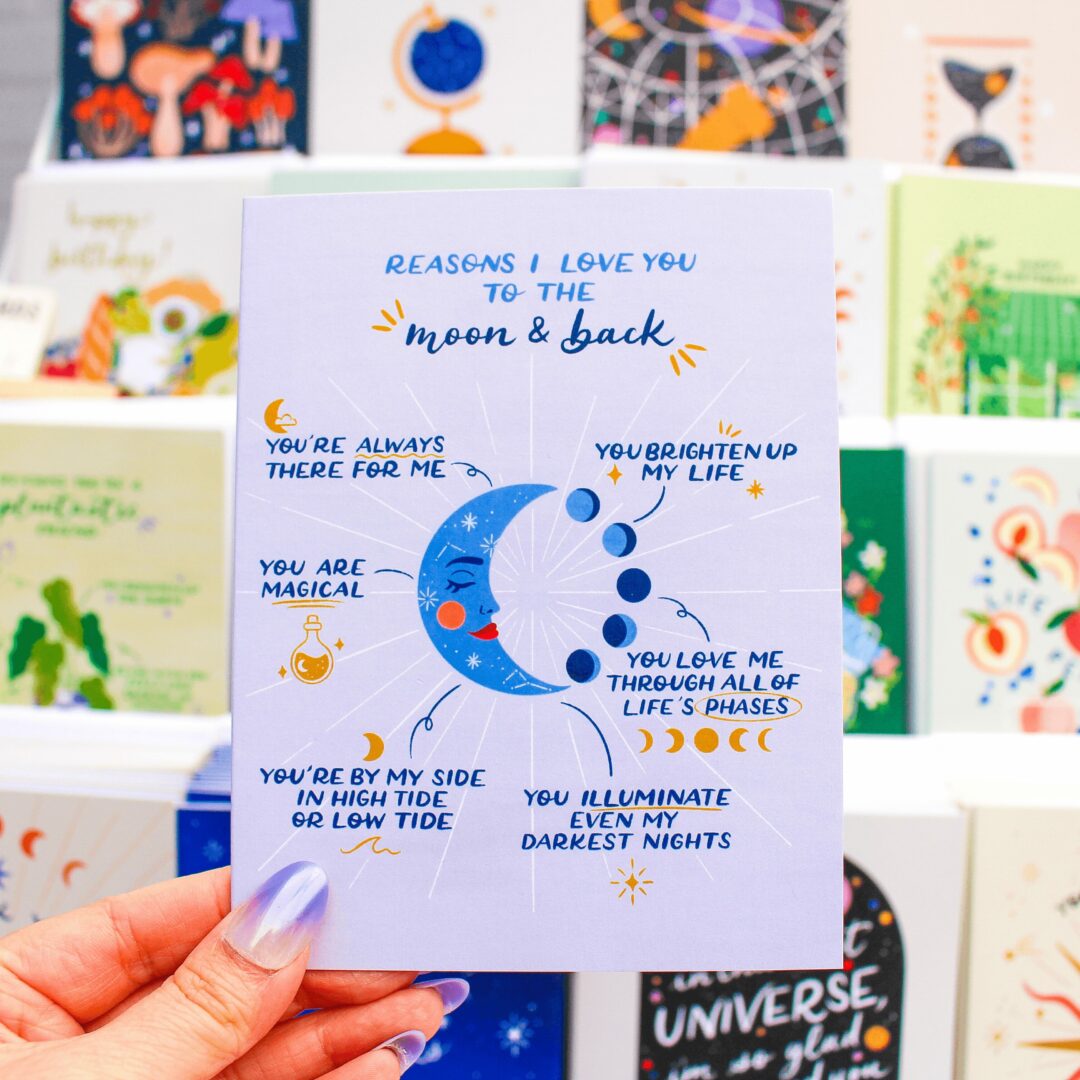 REASONS I LOVE YOU
TO THE
moon & back
YOU'RE ALWAYS
THERE FOR ME
YOU BRIGHTEN UP
MY LIFE
YOU ARE
MAGICAL
YOU LOVE ME
THROUGH ALL OF
LIFE'S PHASES
YOU'RE BY MY SIDE
IN HIGH TIDE
OR LOW TIDE
YOU ILLUMINATE
EVEN MY
DARKEST NIGHTS
happy
birthday!
LIFE
UNIVERSE,
i'm so glad